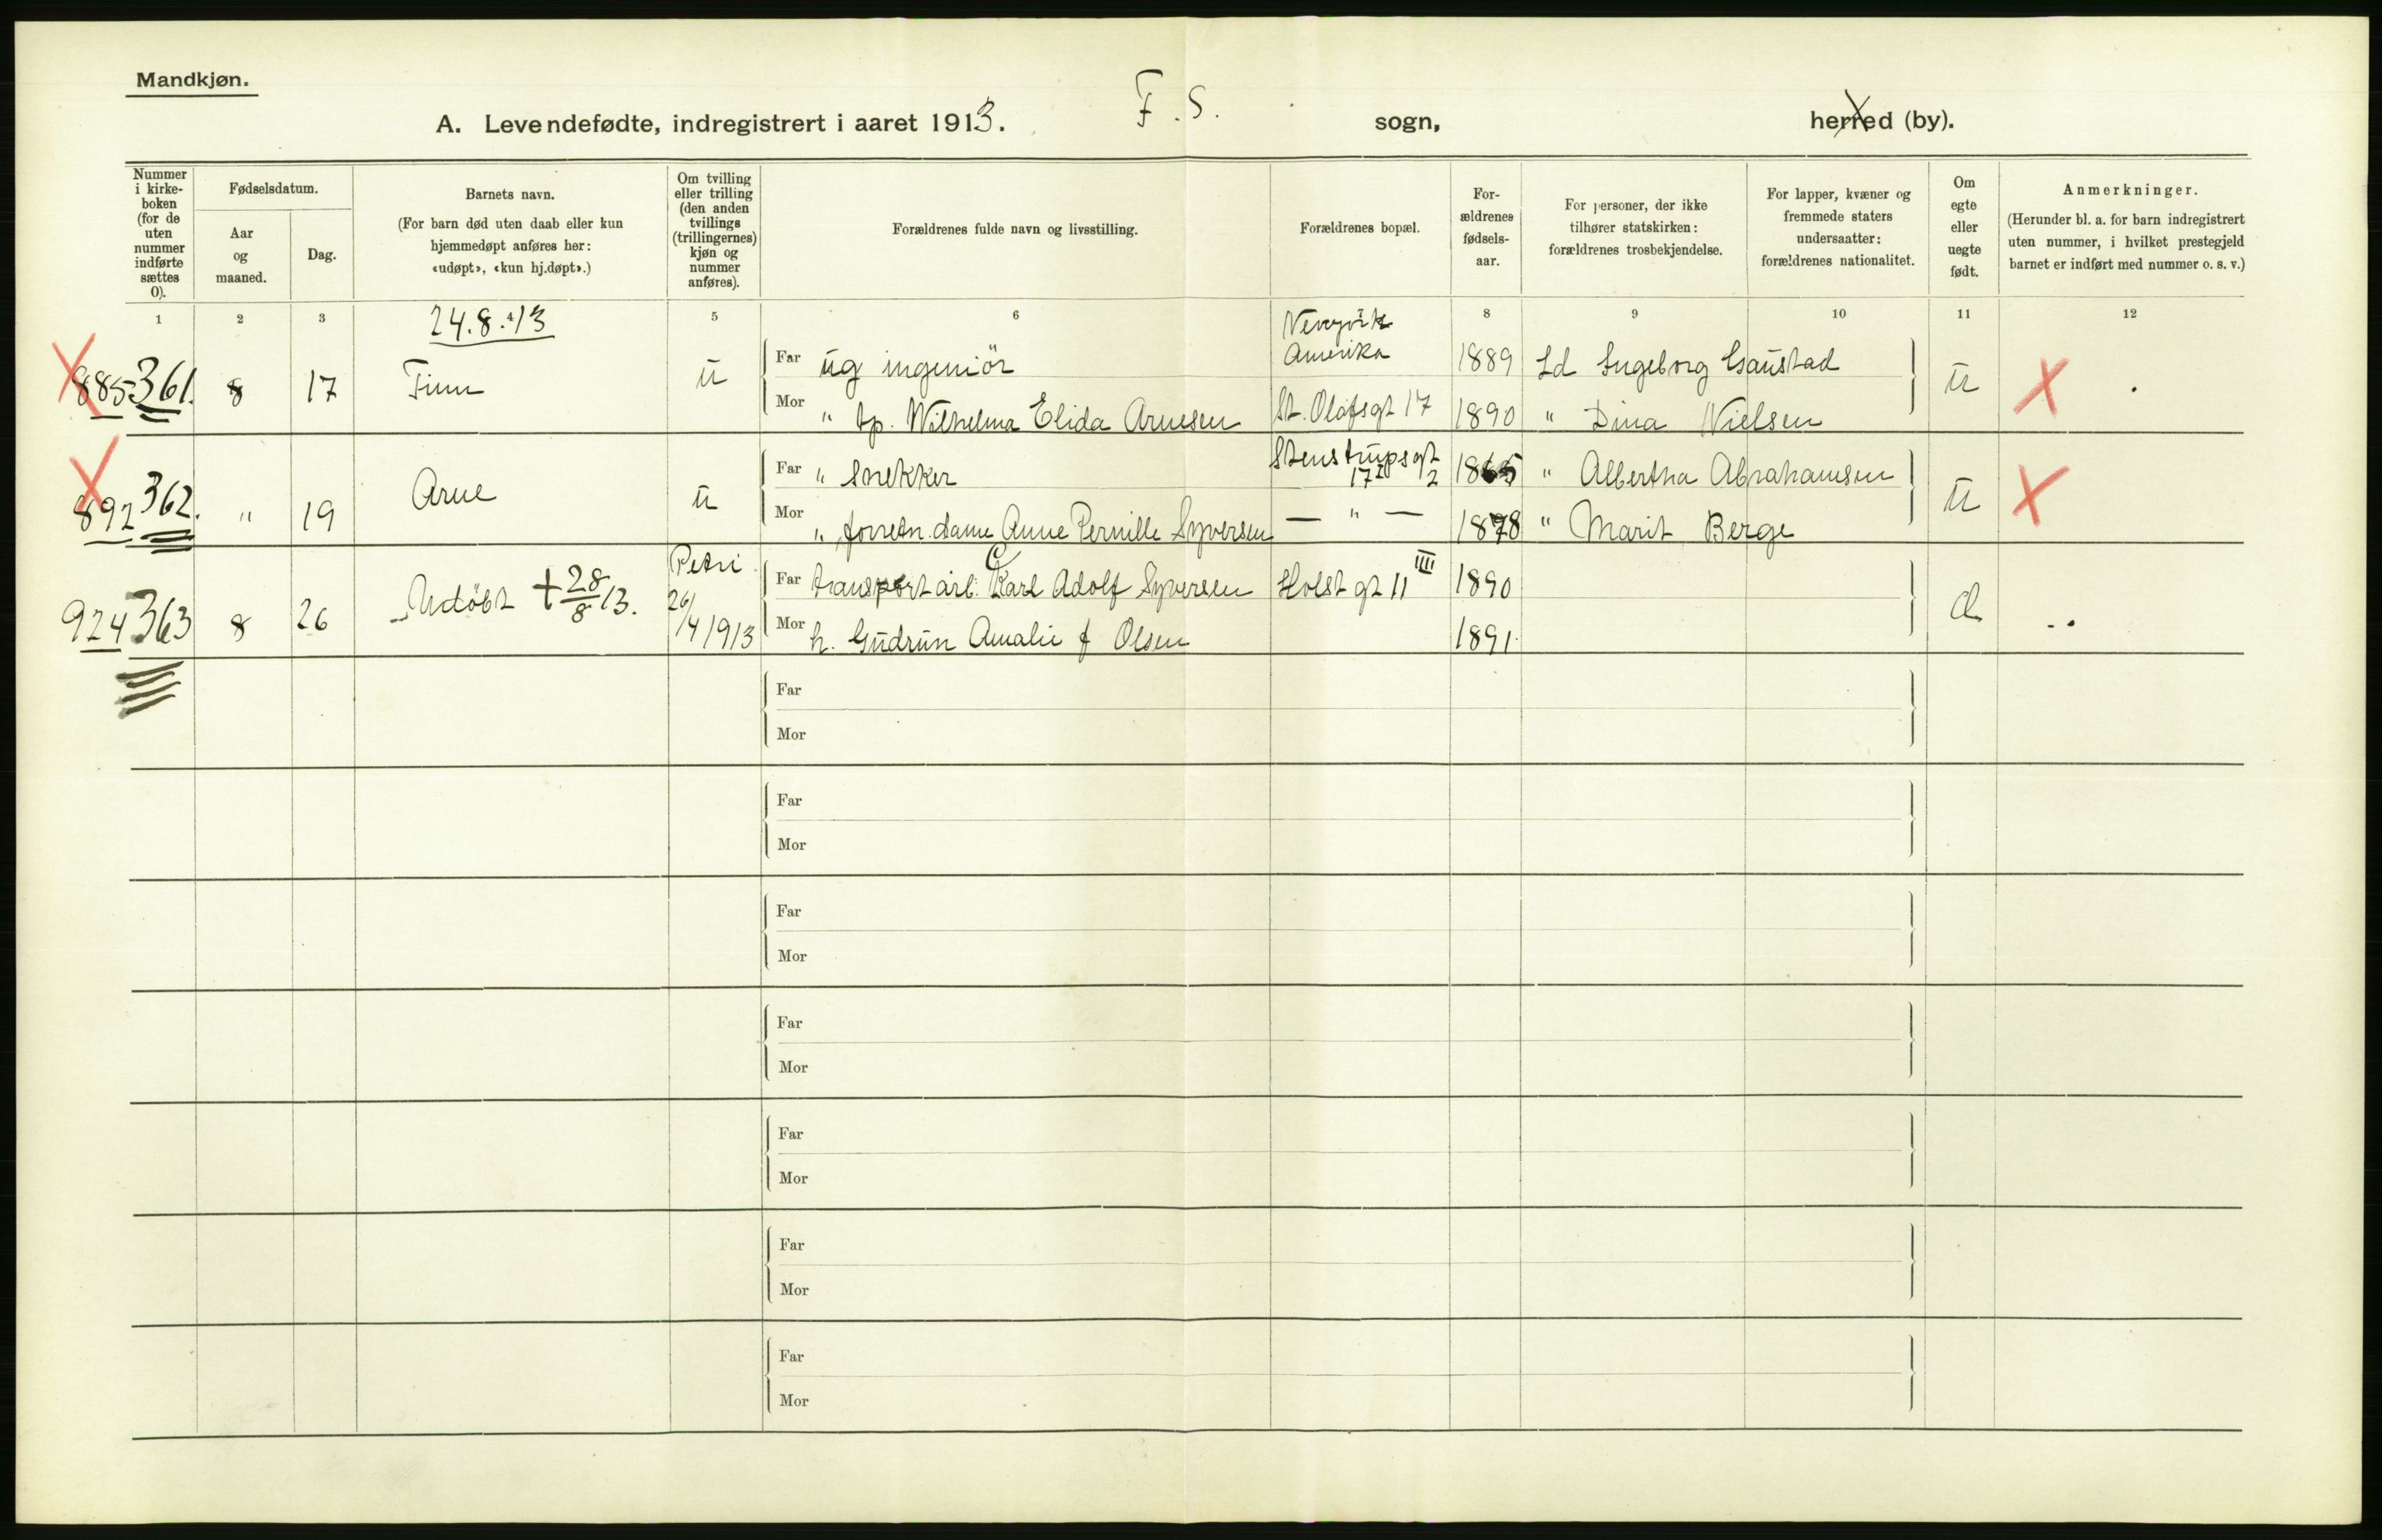 Mandkjøn.
A. Levendefødte, indregistrert i aaret 1913. F. S. sogn, herred (by).
Nummer i kirke-boken (for de uten nummer indførte sættes 0).
Fødselsdatum.
Aar og maaned.
Dag.
Barnets navn.
(For barn død uten daab eller kun hjemmedøpt anføres her: «udøpt», «kun hj.døpt».)
Om tvilling eller trilling (den anden tvillings (trillingernes) kjøn og nummer anføres).
Forældrenes fulde navn og livsstilling.
Forældrenes bopæl.
For-ældrenes fødsels-aar.
For personer, der ikke tilhører statskirken: forældrenes trosbekjendelse.
For lapper, kvæner og fremmede staters undersaatter: forældrenes nationalitet.
Om egte eller uegte født.
Anmerkninger.
(Herunder bl. a. for barn indregistrert uten nummer, i hvilket prestegjeld barnet er indført med nummer o. s. v.)
1 2 3 5 6 8 9 10 11 12
24.8.13
885 361. 8 17 Finn u
Far ug ingeniör Newyork Amerika 1889 Ld Ingeborg Gaustad
Mor " tp. Wilhelma Elida Arnesen St. Olafsgt 17 1890 " Dina Nielsen
u X
892 362. " 19 Arne u
Far " Snekker Stenstrupsgt 17 I 2 1865 " Albertha Abrahamsen
Mor " forretn.dame Anne Pernille Syversen — " — 1878 " Marit Berge
u X
924 363 8 26 Udöbt + 28/8 13. Petri 26/4 1913
Far transportarb: Karl Adolf Syversen Holst gt 11 IIII 1890
Mor h. Gudrun Amalie f Olsen 1891
Far
Mor
Far
Mor
Far
Mor
Far
Mor
Far
Mor
Far
Mor
Far
Mor